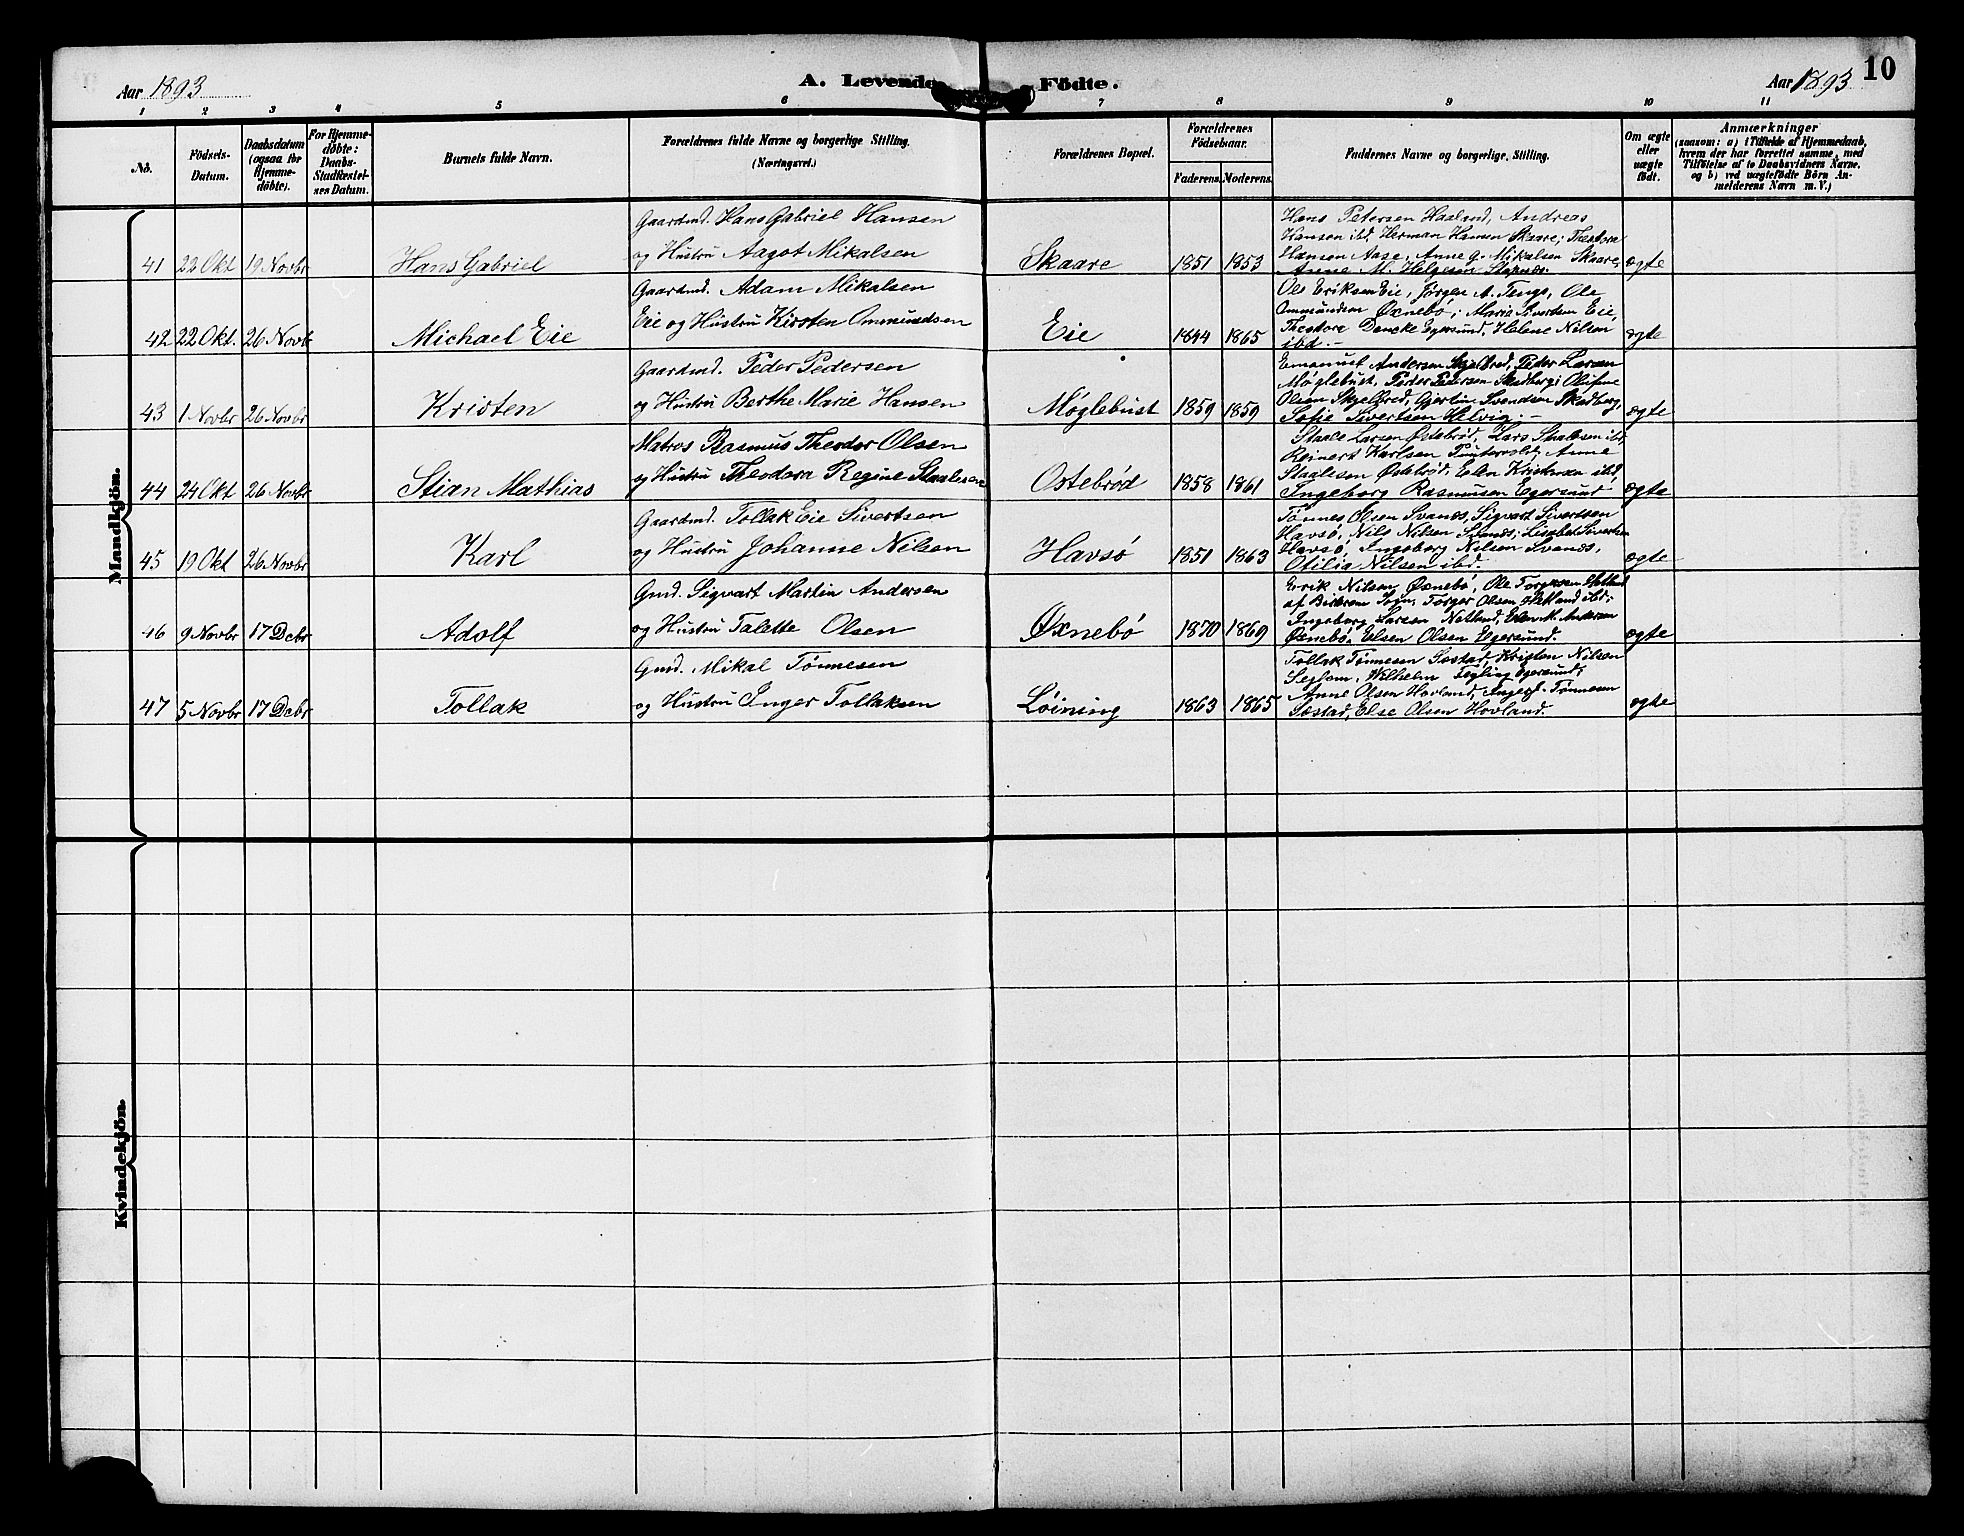 Aar 1893
A. Levende Födte.
Aar 1893
10
1 2 3 4 5 6 7 8 9 10 11
No.
Födsels-
Datum.
Daabsdatum
(ogsaa for
Hjemme-
döbte).
For Hjemme-
döbte:
Daabs-
Stadfæstel-
ses Datum.
Barnets fulde Navn.
Forældrenes fulde Navne og borgerlige Stilling.
(Næringsvei.)
Forældrenes Bopæl.
Forældrenes
Födselsaar.
Faderens.
Moderens.
Faddernes Navne og borgerlige Stilling.
Om ægte
eller
uægte
født.
Anmærkninger
(saasom: a) i Tilfælde af Hjemmedaab,
hvem der har forrettet samme, med
Tilföielse af to Daabsvidners Navne,
og b) ved uægtefödte Börn An-
melderens Navn m. V.)
Mandkjön.
41 22 Okt 19 Novbr Hans Gabriel
Gaardmd. Hans Gabriel Hansen
og Hustru Aagot Mikalsen
Skaare 1851 1853
Hans Petersen Haaland, Andreas
Hanson ibd, Herman Hansen Skaare; Theodora
Hanson Aase, Anne G. Mikalsen Skaare,
Anne M. Helgesen Stapnes.
ægte
42 22 Okt. 26 Novb Michael Eie
Gaardmd. Adam Mikalsen
Eie og Hustru Kirsten Ommundsen
Eie 1844 1865
Ole Eriksen Eie, Jörgen A. Tengs, Ole
Ommundsen Øxnebö; Maria Sivertsen Eie,
Theodora Dencke Egersund, Helene Nilsen
ibd. –
ægte
43 1 Novbr 26 Novbr Kristen
Gaardmd. Peder Pedersen
og Hustru Berthe Marie Hansen
Møglebust 1859 1859
Emanuel Andersen Skjelbred, Peder Larsen
Møglebust, Peder Pedersen Skadberg; Olufine
Olsen Skjelbred, Gjertine Svendsen Skadberg,
Sofie Sivertsen Helvig. –
ægte
44 24 Okt 26 Novbr Stian Mathias
Matros Rasmus Theodor Olsen
og Hustru Theodora Regine Staalesen
Ostebrød 1858 1861
Staale Larsen Østebrød, Lars Staalesen ibd
Reinert Karlsen Puntervold, Anne
Staalesen Østebrød, Elen Kristensen ibd,
Ingeborg Rasmusen Egersund
ægte
45 19 Okt 26 Novbr Karl
Gaardmd. Tollak Eie Sivertsen
og Hustru Johanne Nilsen
Havsö 1851 1863
Tönnes Olsen Svanes, Sigvart Sivertsen
Havsö, Nils Nilsen Svanes; Lisabet Sivertsen
Havsö, Ingeborg Nilsen Svanes,
Otilia Nilsen ibd.
ægte
46 9 Novbr 17 Dcbr Adolf
Gmd. Sigvart Martin Andersen
og Hustru Talette Olsen
Øxnebö 1870 1869
Erik Nilsen Øxnebö, Ole Torgersen Hetland
af Birkrem Sogn, Torger Olsen Hetland ibd.
Ingeborg Larsen Netland, Elen M. Andersen
Øxnebö, Elsen Olsen Egersund.
ægte
47 5 Novbr 17 Dcbr Tollak
Gmd. Mikal Tönnesen
og Hustru Inger Tollaksen
Löining 1863 1865
Tollak Tönnesen Sæstad, Kristen Nilsen
Seglem, Wilhelm Fegling Egersund;
Anne Olsen Hovland, Tönnesen
Sæstad, Else Olsen Hovland.
ægte
Kvindekjön.